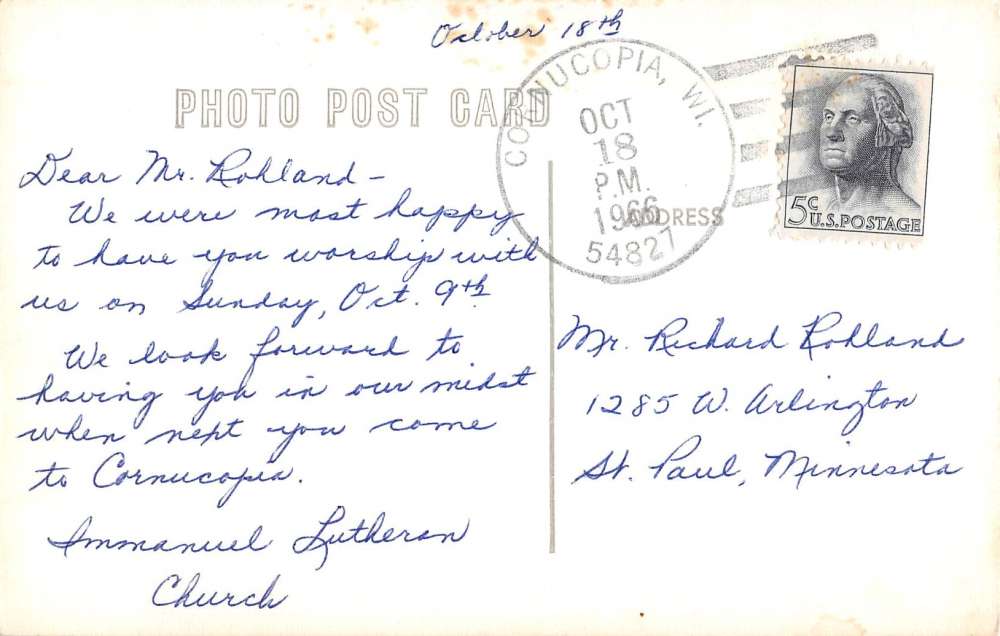 October 18th
PHOTO POST CARD
CORNUCOPIA, WI.
OCT
18
P.M.
1966
54827
5c
U.S. POSTAGE
ADDRESS
Dear Mr. Rohland -
We were most happy
to have you worship with
us on Sunday, Oct. 9th.
We look forward to
having you in our midst
when next you come
to Cornucopia.
Immanuel Lutheran
Church
Mr. Richard Rohland
1285 W. Arlington
St. Paul, Minnesota